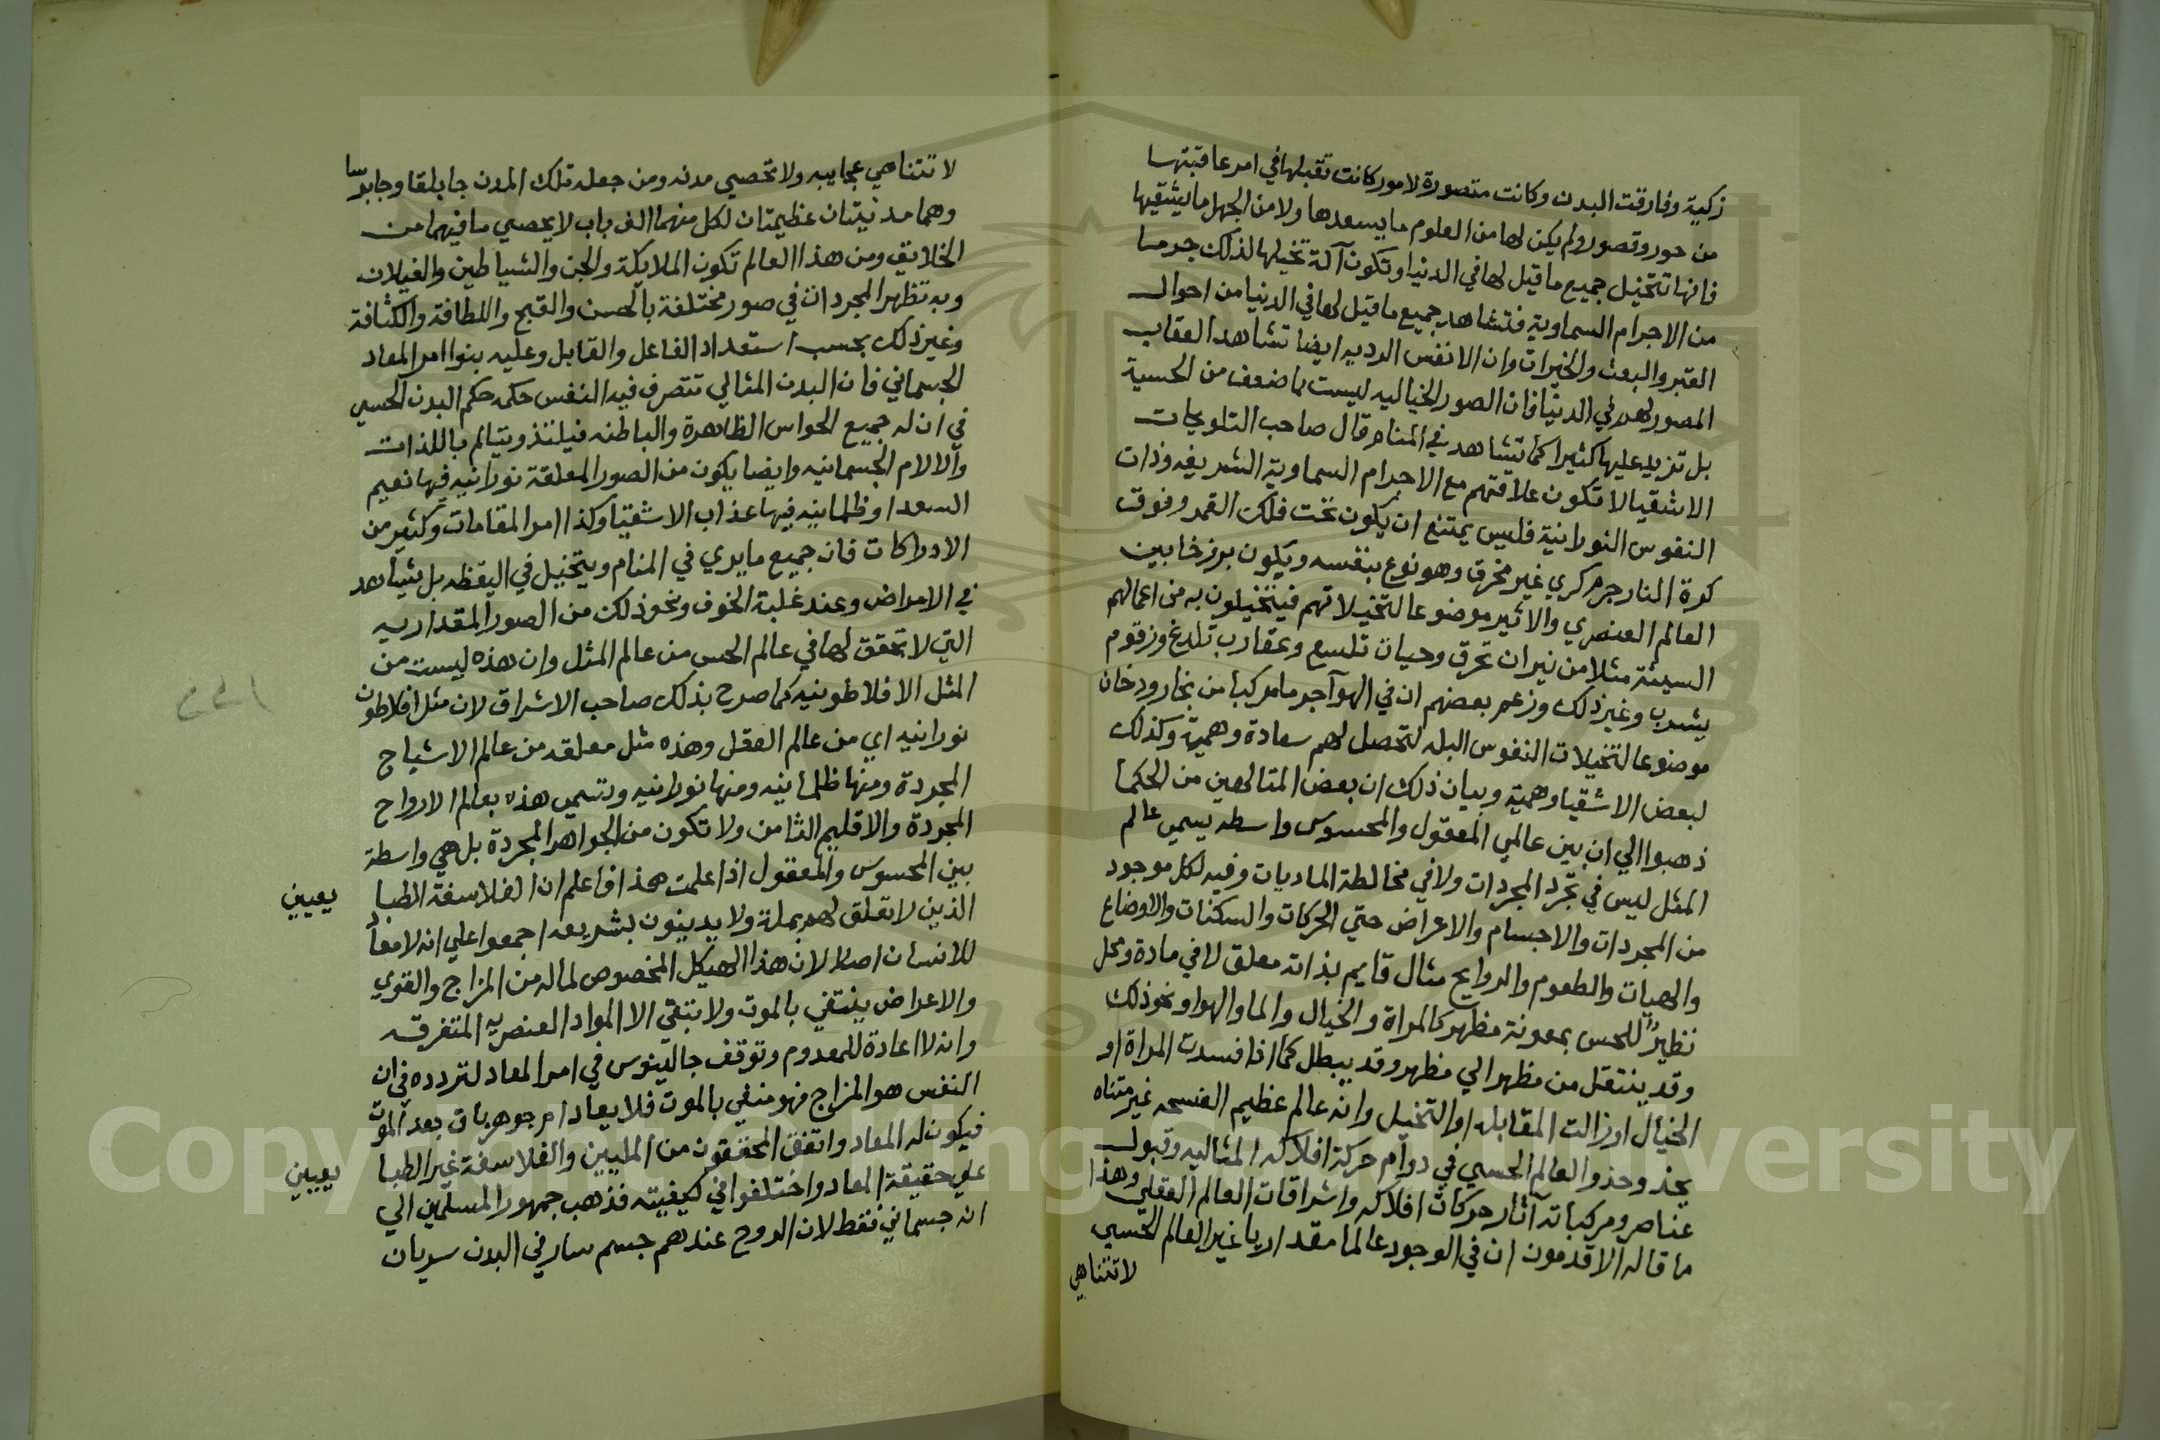 زكية وفارقت البدن وكانت متصورة لامور كانت تقبلها في امر عاقبتها
من حور وقصور ولم يكن لها من العلوم ما يسعدها ولا من الجهل ما يشقيها
فانها تتخيل جميع ما قيل لها في الدنيا وتكون آلة تخيلها لذلك جرما
من الاجرام السماوية فتشاهد جميع ما قيل لها في الدنيا من احوال
القبر والبعث والخيرات وان الانفس الرديه ايضا تشاهد العقاب
المصور لهم في الدنيا فان الصور الخياليه ليست باضعف من الحسية
بل تزيد عليها كثيرا كما تشاهد في المنام قال صاحب التلويحات
الاشقيا لا تكون علاقتهم مع الاجرام السماوية الشريفه وذات
النفوس النورانية فليس يمتنع ان يكون تحت فلك القمر وفوق
كرة النار جرم كري غير مخرق وهو نوع بنفسه ويكون برزخا بين
العالم العنصري والاثير موضوعا لتخيلاتهم فيتخيلون به من اعمالهم
السيئة مثلا من نيران تحرق وحيات تلسع وعقارب تلدغ وزقوم
يشرب وغير ذلك وزعم بعضهم ان في الهوآ جرما مركبا من بخار ودخان
موضوعا لتخيلات النفوس البله لتحصل لهم سعادة وهمية وكذلك
لبعض الاشقيا وهمية وبيان ذلك ان بعض المتالهين من الحكما
ذهبوا الي ان بين عالمي المعقول والمحسوس واسطه يسمي عالم
المثل ليس في تجرد المجردات ولا في مخالطة الماديات وفيه لكل موجود
من المجردات والاجسام والاعراض حتي الحركات والسكنات والاوضاع
والهيات والطعوم والروايح مثال قايم بذاته معلق لا في مادة ومحل
نظير للحس بمعونة مظهر كالمراة والخيال والما والهوا ونحو ذلك
وقد ينتقل من مظهر الي مظهر وقد يبطل كما اذا فسدت المراة او
الخيال او زالت المقابله او التخيل وانه عالم عظيم الفسحه غير متناه
يحذو حذو العالم الحسي في دوام حركة افلاكه المثاليه وقبول
عناصره ومركباته آثار حركات افلاكه واشراقات العالم العقلي وهذا
ما قاله الاقدمون ان في الوجود عالما مقداريا غير العالم الحسي
لا تتناهي
لا تتناهي عجايبه ولا تحصي مدنه ومن جمله تلك المدن جابلقا وجابرسا
وهما مدينتان عظيمتان لكل منهما الف باب لا يحصي ما فيهما من
الخلايق ومن هذا العالم تكون الملايكة والجن والشياطين والغيلان
وبه تظهر المجردات في صور مختلفة بالحسن والقبح واللطافة والكثافة
وغير ذلك بحسب استعداد الفاعل والقابل وعليه بنوا امر المعاد
الجسماني فان البدن المثالي تتصرف فيه النفس حكمه حكم البدن الحسي
في ان له جميع الحواس الظاهرة والباطنه فيلتذ ويتالم باللذات
والالام الجسمانيه وايضا يكون من الصور المعلقة نورانيه فيها نعيم
السعدا وظلمانيه فيها عذاب الاشقيا وكذا امر المقامات وكثير من
الادراكات فان جميع ما يري في المنام ويتخيل في اليقظه بل يشاهد
في الامراض وعند غلبة الخوف ونحو ذلك من الصور المقداريه
التي لا تحقق لها في عالم الحس من عالم المثل وان هذه ليست من
المثل الافلاطونيه كما صرح بذلك صاحب الاشراق لان مثل افلاطون
نورانيه اي من عالم العقل وهذه مثل معلقه من عالم الاشباح
المجردة ومنها ظلمانيه ومنها نورانيه وتسمي هذه بعالم الارواح
المجردة والاقليم الثامن ولا تكون من الجواهر المجردة بل هي واسطة
بين المحسوس والمعقول اذا علمت هذا فاعلم ان الفلاسفة الطبا يعيين
الذين لا تعلق لهم بملة ولا يدينون بشريعه اجمعوا علي انه لا معاد
للانسان اصلا لان هذا الهيكل المخصوص لماله من المزاج والقوي
والاعراض ينتفي بالموت ولا تبقي الا المواد العنصريه المتفرقه
وانه لا اعادة للمعدوم وتوقف جالينوس في امر المعاد لتردده في ان
النفس هو المزاج فهو منفي بالموت فلا يعاد ام جوهر باق بعد الموت
فيكون له المعاد واتفق المحققون من المليين والفلاسفة غير الطبا يعيين
علي حقيقة المعاد واختلفوا في كيفيته فذهب جمهور المسلمين الي
انه جسماني فقط لان الروح عندهم جسم سار في البدن سريان
Copyright © King Saud University